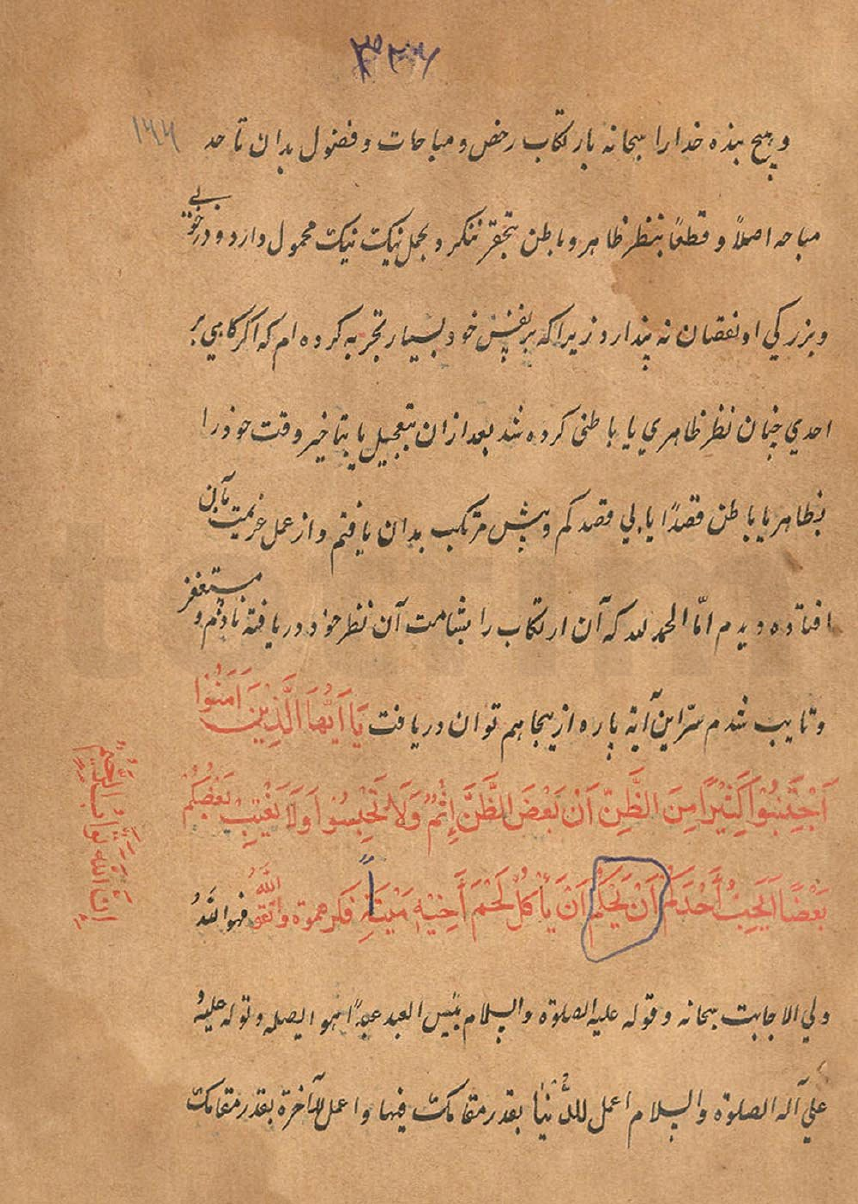 ۳۳۶
۱۴۴
و هیچ بنده خدارا سبحانه بارتکاب رخص و مباحات و فضول بدان تا حد
مباحه اصلاً و قطعاً بنظر ظاهر و باطن بتحقیر ننکرد و بحمل نیک نیک محمول دارد و در خوبی
و بزرکی او نقصان نه پندارد زیراکه بر نفس خود بسیار تجربه کرده ام که اکر کاهی بر
احدی چنان نظر ظاهری یا باطنی کرده شد بعد ازان بتعجیل یا بتاخیر وقت خود را
بظاهر یا باطن قصدًا یا بی قصد کم و بیش مرتکب بدان یافتم و از عمل عزیمت بآن
افتاده دیدم امّا الحمد لله که آن ارتکاب را بشامت آن نظر خود دریافته نادم و مستغفر
و تایب شدم سرّ این آیه پاره ازینجا هم توان دریافت یَا اَیُّهَا الَّذِینَ اَمَنُوا
اَجْتَنِبُوْا كَثِیْرًا مِنَ الظَّنِّ اَنْ بَعْضَ الظَّنَّ اِثْمٌ وَلَا تَجَسِسُوْا وَلَا یَغْتِبْ بَعْضُكُمْ
بَعْضًا اَیَحِبُّ أَحْدَكُمْ اَنْ یَحْكُمْ اَنْ یَأْكُلْ لَحْمَ أَخِیْهِ مَیْتَةً فكرهموه واتقو اللّٰه فهو اللهُ
ان الله تواب الرحیم
ولی الاجابت سبحانه و قوله علیه الصلوة والسلام بئیس العبد عبدًا هو ایصله و قوله علیه و
علی آله الصلوة والسلام اعمل للدُّنْیَا بقدر مقامک فیها و اعمل للآخرة بقدر مقامک